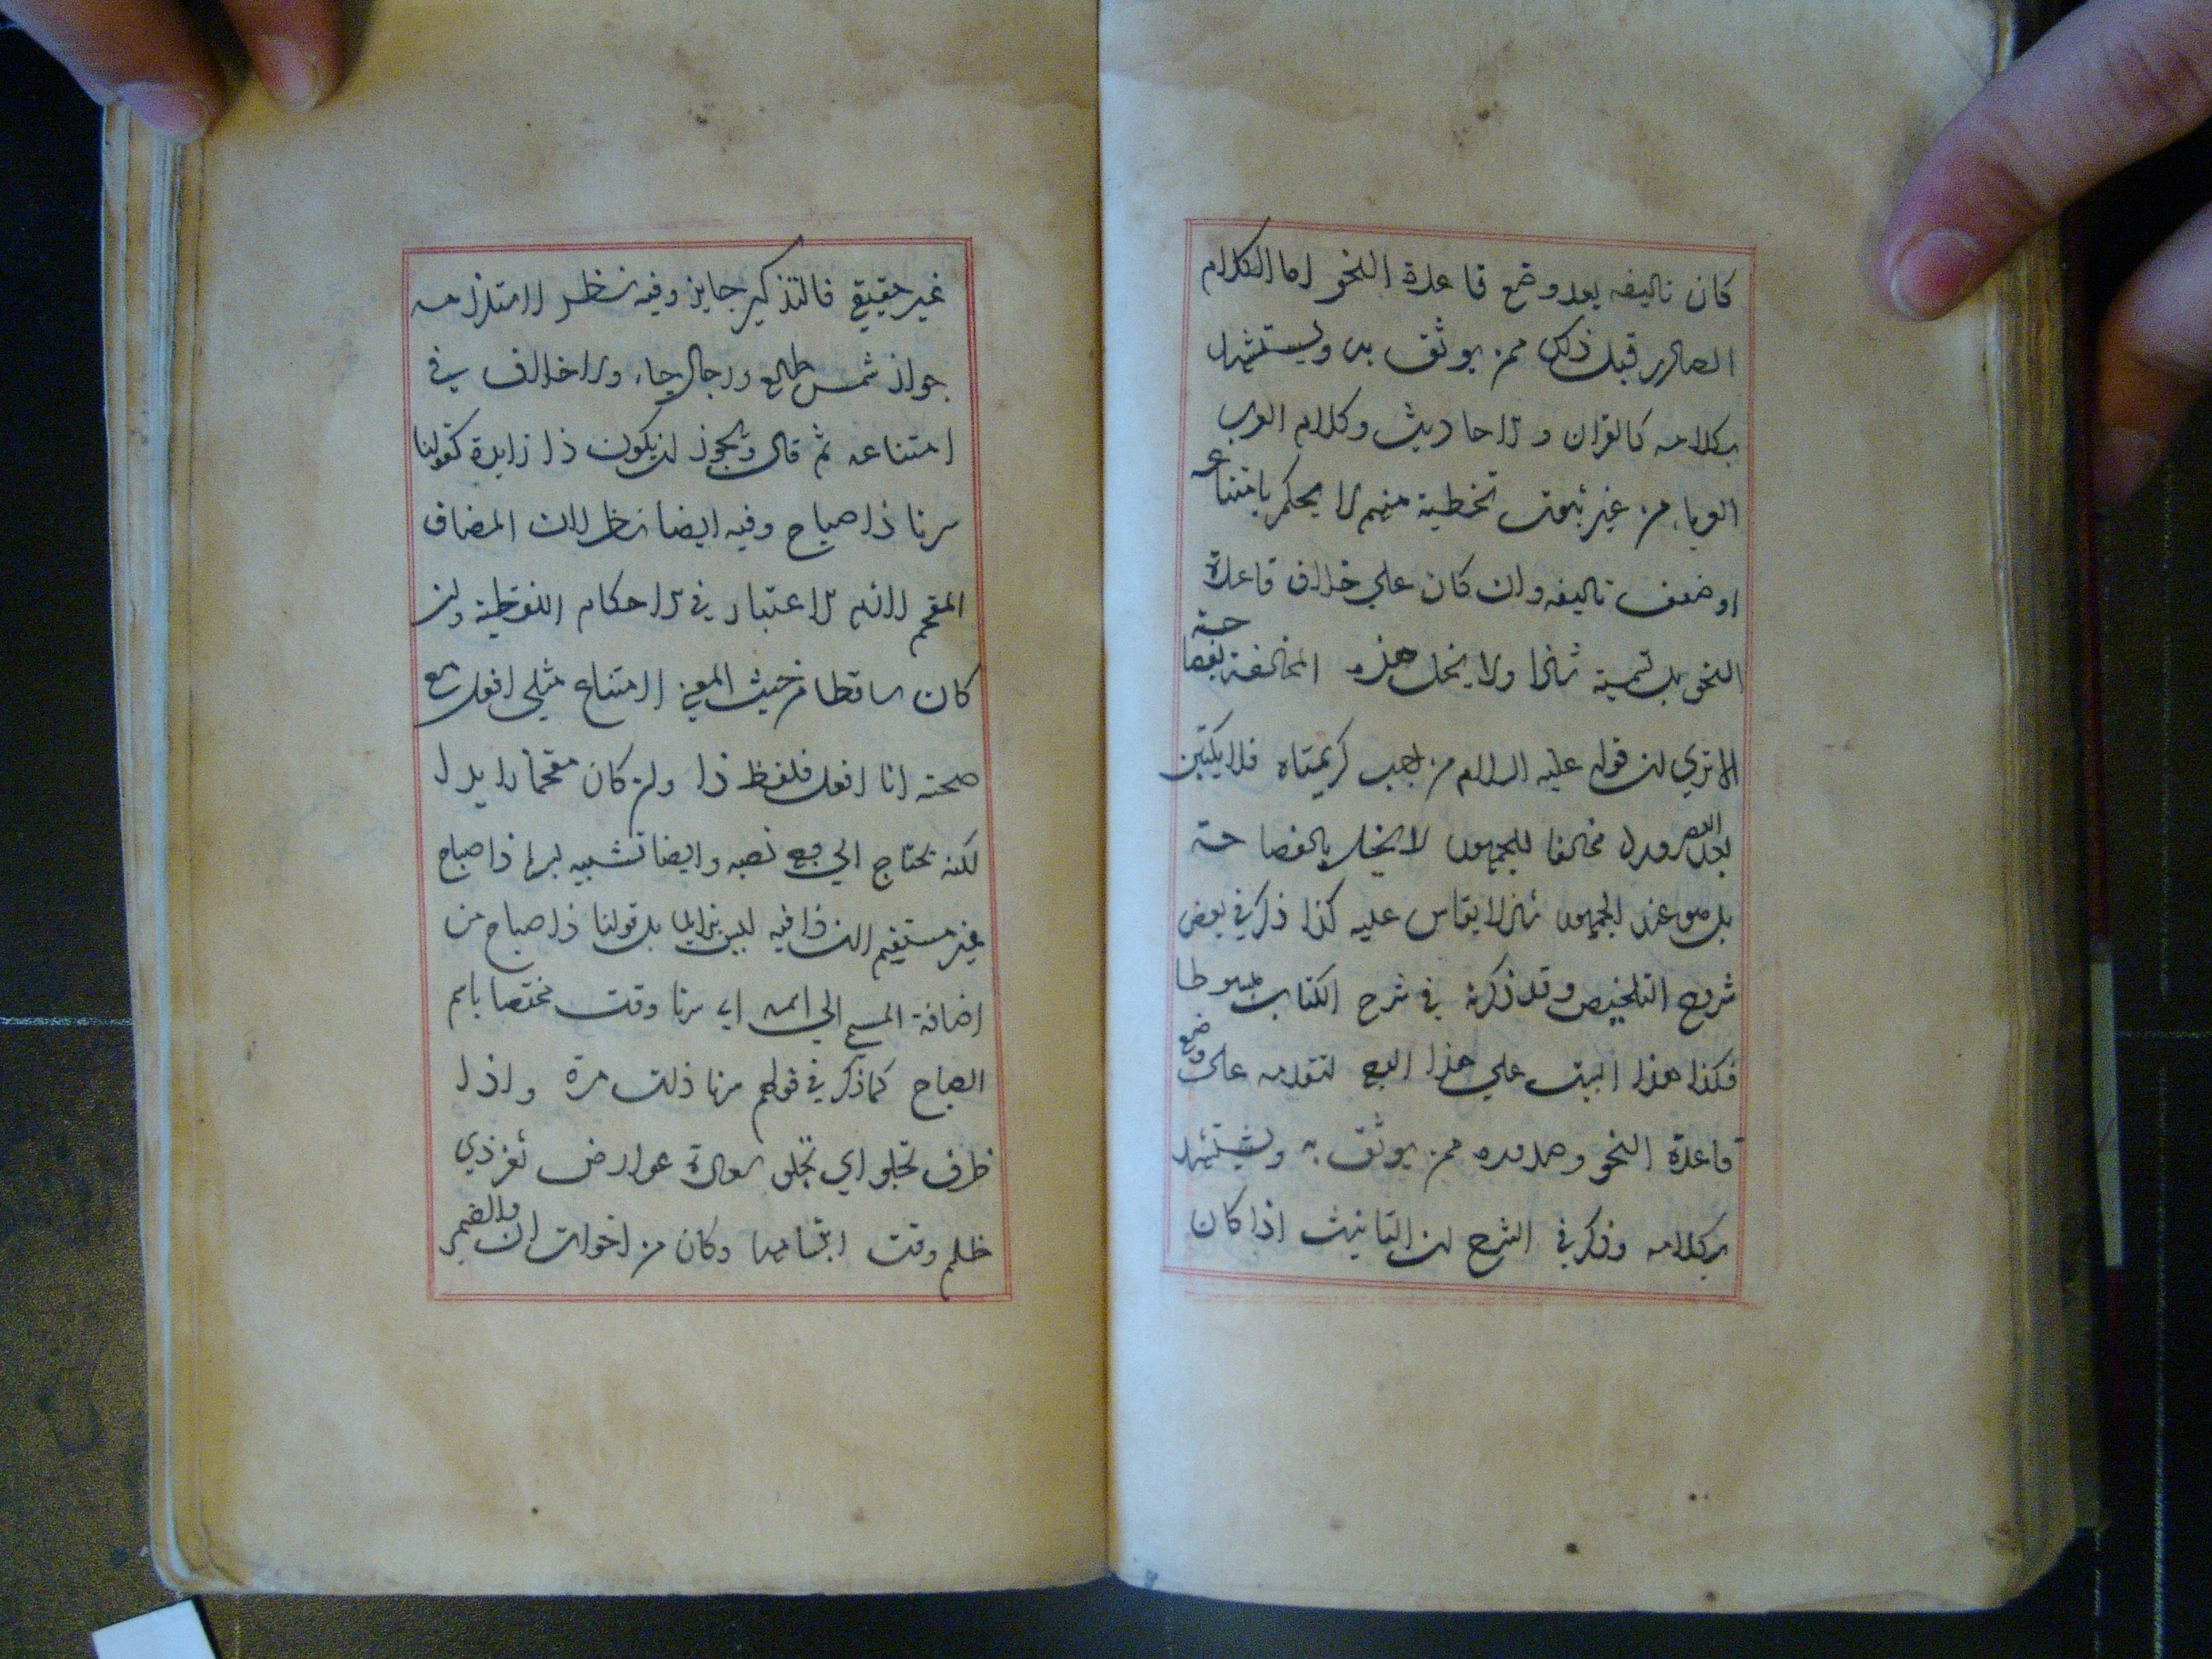 كان تاليفه بعد وضع قاعدة النحو اما الكلام
الصادر قبل ذلك ممن يوثق به ويستشهد
بكلامه كالقران والاحاديث وكلام العرب
العرباء من غير ثبوت تخطية منهم لا يحكم بامتناعه
او ضعف تاليفه وان كان على خلاف قاعدة
النحو بل تسمية شاذا ولا يخل هذه المخالفة بفصاحته
الا ترى ان قوله عليه السلام من كريمتاه فلا يكتبن
بعد العصر مخالفا للجمهور لا يخل بالفصاحة
بل هو عند الجمهور شاذ لا يقاس عليه كذا ذكر في بعض
شروح التلخيص وقد ذكرته في شرح الكتاب مبسوطا
فكذا هذا البيت على هذا الوجه لتقدمه على وضع
قاعدة النحو وصدوره ممن يوثق به ويستشهد
بكلامه وذكر في الشرح ان التانيث اذا كان
غير حقيقي فالتذكير جايز وفيه نظر لاستلزامه
جواز شمس طالع ورجال جاء ولا خلاف في
امتناعه ثم قال ويجوز ان يكون ذا زايدة كقولنا
سرنا ذا صباح وفيه ايضا نظر لان المضاف
المقحم لانه لاعتبار في الاحكام اللفظية وان
كان ساقطا من حيث المعنى لامتناع مثلي افعل مع
صحته انا افعل فلفظ ذا وان كان مقحما لا بد
لكنه يحتاج الى وجه نصبه وايضا تشبيه ذا صباح
غير مستقيم لان ذا فيه ليس بزايد بل قولنا ذا صباح من
اضافة المسمى الى اسمه اى سرنا وقت مختصا باسم
الصباح كما ذكر في قولهم سرنا ذات مرة واذا
ظرف تجلو اي تجلو سعادة عوارض ثغر ذي
ظلم وقت ابتسامها وكان من اخوات ان والضمير